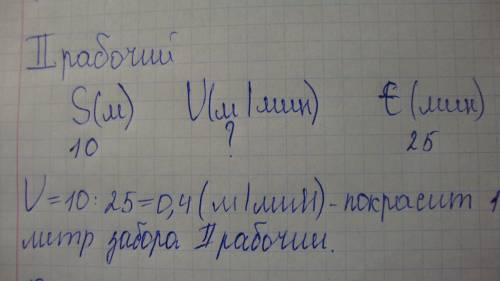 II рабочий
S(м) V(м/мин) t(мин)
10 ? 25
V=10:25=0,4(м/мин)-покрасит 1
метр забора II рабочий.